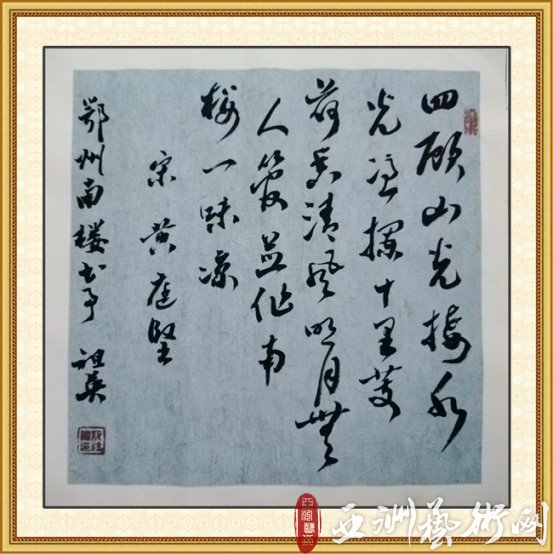 四顾山光接水
光凭栏十里芰
荷香清风明月無
人管並作南
楼一味凉
宋 黄庭坚
鄂州南楼书事 祖英
亞洲藝術网